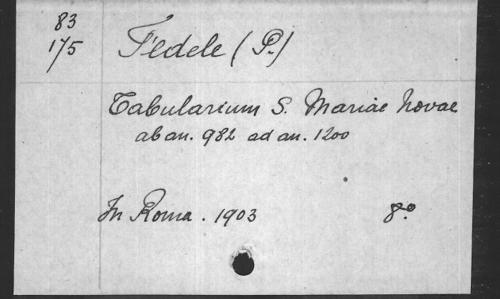 83
175
Fedele (P.)
Tabularium S. Mariae Novae
ab an. 982 ad an. 1200
In Roma. 1903 8º